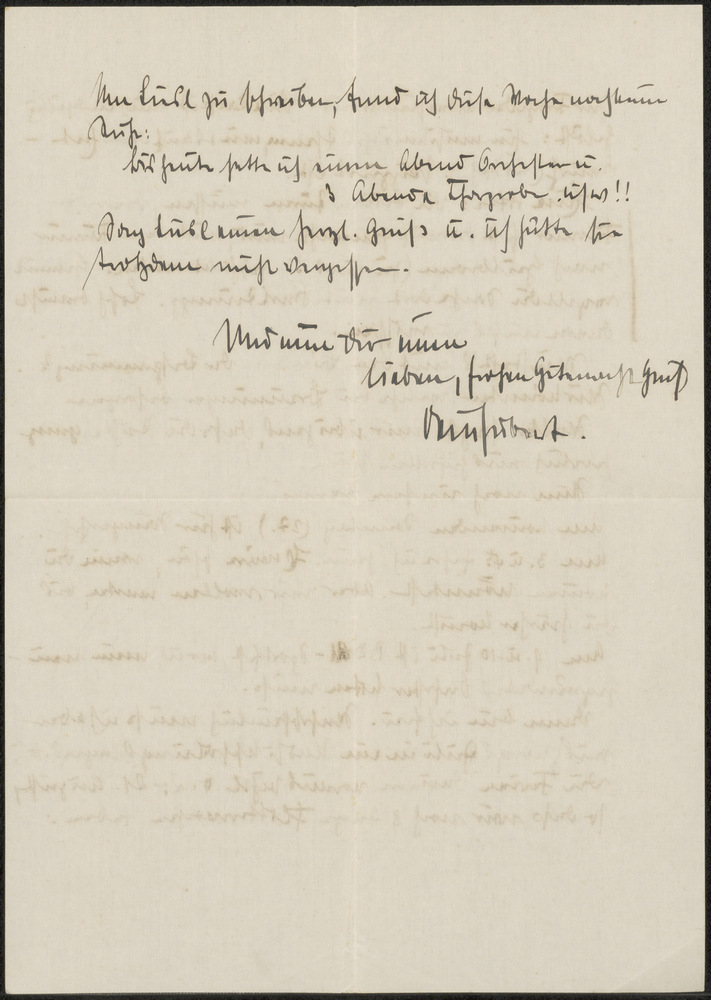 Um Lisl zu schreiben, fand ich diese Woche noch kaum
Ruhe:
bis heute hatte ich einen Abend Orchester u.
3 Abende Chorprobe usw!!
Sag Lisl einen herzl. Gruß u. ich hätte sie
trotzdem nicht vergessen.
Und nun Dir einen
lieben, frohen Gutenacht Gruß
Dein Hubert.